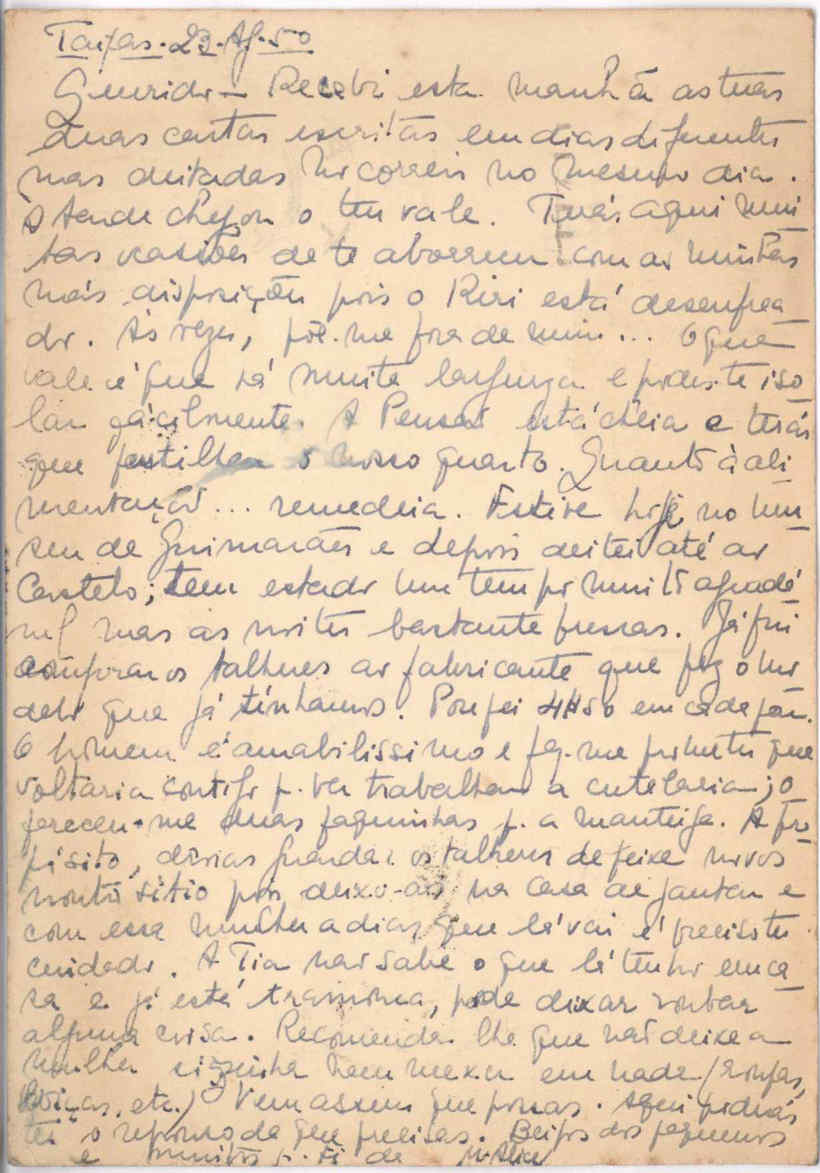 Taipas. 23. Ag. 50
Querido – Recebi esta manhã as tuas
duas cartas escritas em dias diferentes
mas deitadas no correio no mesmo dia.
À tarde chegou o teu vale. Terás aqui mui
tas ocasiões de te aborrecer com as minhas
más disposições pois o Kiri está desenfrea
do. Às vezes, põe-me fora de mim... O que
vale é que há muita largueza e podes-te iso
lar facilmente. A Pensão está cheia e terás
que partilhar o nosso quarto. Quanto à ali
mentação... remedeia. Estive hoje no Mu
seu de Guimarães e depois deitei até ao
Castelo; tem estado um tempo muito agradá
vel mas as noites bastante frescas. Já fui
comprar os talheres ao fabricante que fez o mo
delo que já tínhamos. Poupei 4$50 em cada
O homem é amabilíssimo e fez-me prometer que
voltaria contigo p. ver trabalhar a cutelaria; o
fereceu-me duas faquinhas p. a manteiga. A pro
pósito, devias guardar os talheres de peixe novos
noutro sítio pois deixo-os na casa de jantar e
com essa mulher a dias que lá vai é preciso ter
cuidado. A Tia não sabe o que lá tenho em ca
sa e já está tramonca, pode deixar roubar
alguma coisa. Recomenda-lhe que não deixe a
mulher sozinha nem mexer em nada (roupas,
loiças, etc.) Vem assim que possas. Aqui poderás
ter o repouso de que precisas. Beijos dos pequenos
e muitos p. ti da